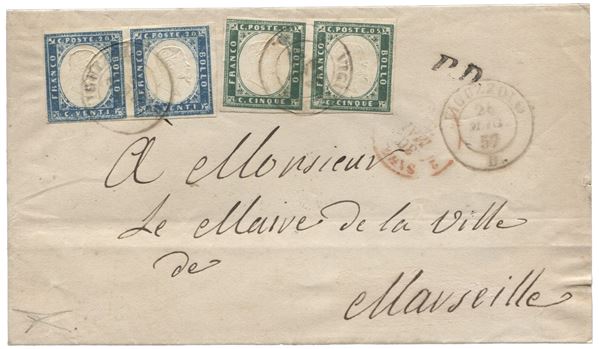 C. POSTE 20
FRANCO
BOLLO
C. VENTI
C. POSTE 20
FRANCO
BOLLO
C. VENTI
C. POSTE 05
FRANCO
BOLLO
C. CINQUE
C. POSTE 05
FRANCO
BOLLO
C. CINQUE
P.D.
26
57
A Monsieur
Le Maire de la Ville
de
Marseille